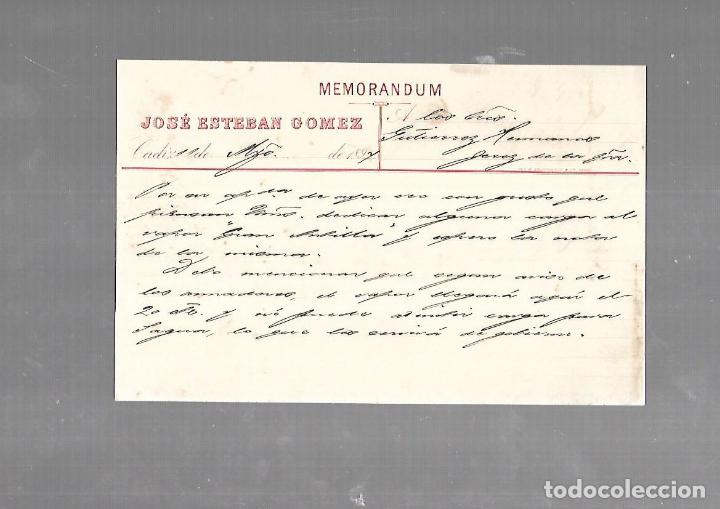 MEMORANDUM
JOSÉ ESTEBAN GOMEZ
A los Sres.
Gutierrez Hermanos
Jerez de la Fra.
Cadiz 11 de Myo. de 1897
Por su aptda. de ayer veo con gusto que
piensan Vdes. dedicar alguna carga al
vapor "Gran Antilla" y espero la nota
de la misma.
Debo mencionar que segun aviso de
los armadores, el vapor llegará aquí el
20 y no puede admitir carga para
Sagua, lo que les servirá de gobierno.
todocoleccion.net